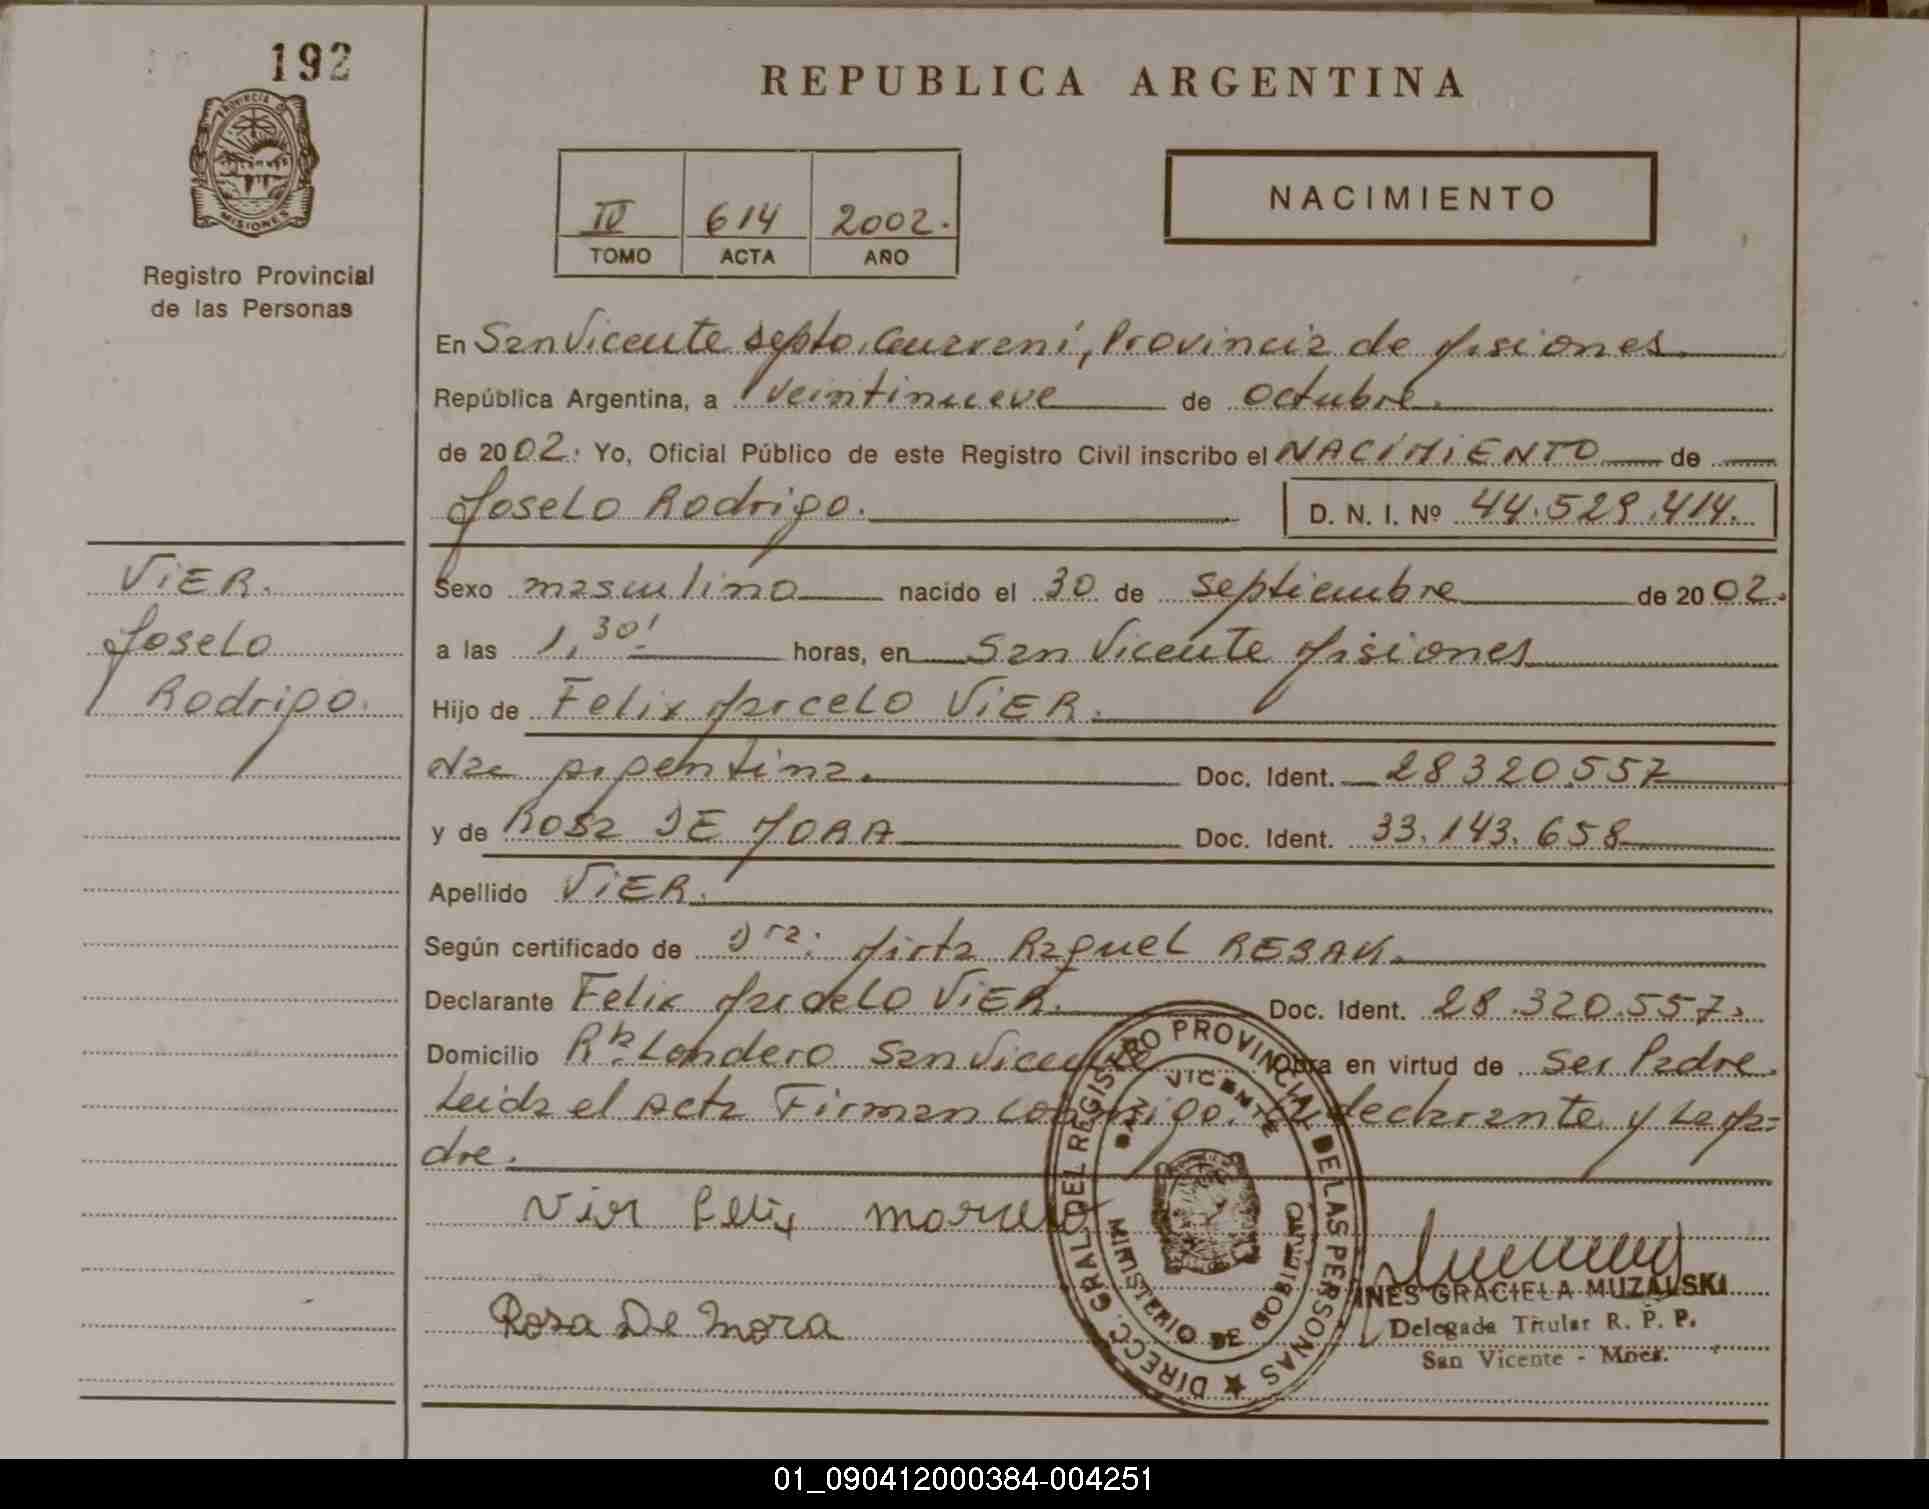 192
PROVINCIA DE
MISIONES
Registro Provincial
de las Personas
REPUBLICA ARGENTINA
IV 614 2002.
TOMO ACTA AÑO
NACIMIENTO
En San Vicente Depto. Guaraní, Provincia de Misiones
República Argentina, a veintinueve de octubre.
de 2002. Yo, Oficial Público de este Registro Civil inscribo el NACIMIENTO de
Joselo Rodrigo. D. N. I. Nº 44.529.414.
VIER.
Joselo
Rodrigo.
Sexo masculino nacido el 30 de septiembre de 2002.
a las 1,30' horas, en San Vicente Misiones
Hijo de Felix Marcelo VIER.
Argentina. Doc. Ident. 28320.557
y de Rosa DE MORA Doc. Ident. 33.143.658
Apellido VIER.
Según certificado de Dra: Mirta Raquel
Declarante Felix Marcelo VIER. Doc. Ident. 28.320.557.
Domicilio Londero San Vicente Obra en virtud de ser Padre.
Leida el Acta Firman conmigo. el declarante y la Ma=
dre.
Vier Felix Marcelo
Rosa De Mora
DIRECC. GRAL. DEL REGISTRO PROVINCIAL DE LAS PERSONAS
SAN VICENTE
MINISTERIO DE GOBIERNO
INES GRACIELA MUZALSKI
Delegada Titular R. P. P.
San Vicente - Mnes.
01_090412000384-004251